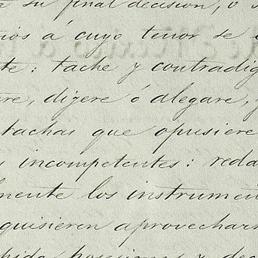 su final decision, ó s
ios á cuyo tenor se
te: tache y contradig
re, digere ó alegare, y
tachas que opusiere
incompetentes: reda
mente los instrumen
quisieren aprovechar
posiciones y de